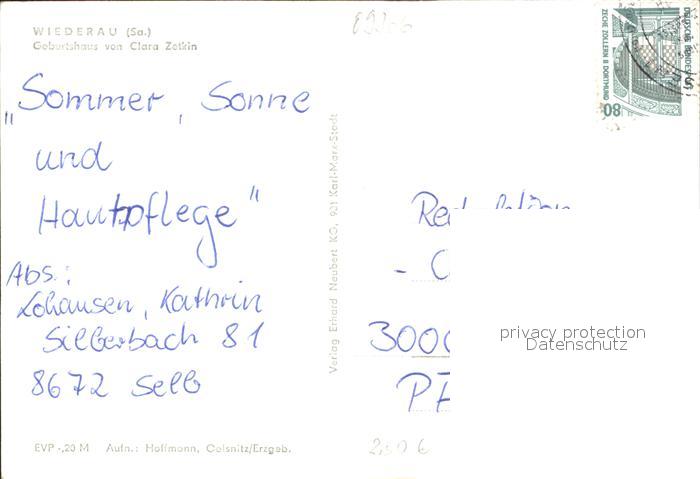 WIEDERAU (Sa.)
Geburtshaus von Clara Zetkin
„Sommer, Sonne
und
Hautpflege"
Abs.:
Lohausen, Kathrin
Silberbach 81
8672 Selb
EVP -,20 M Aufn.: Hoffmann, Oelsnitz/Erzgeb.
Verlag Erhard Neubert KG, 901 Karl-Marx-Stadt
DEUTSCHE BUNDESPOST
ZECHE ZOLLERN II DORTMUND
80
3000
privacy protection
Datenschutz
2,50 €